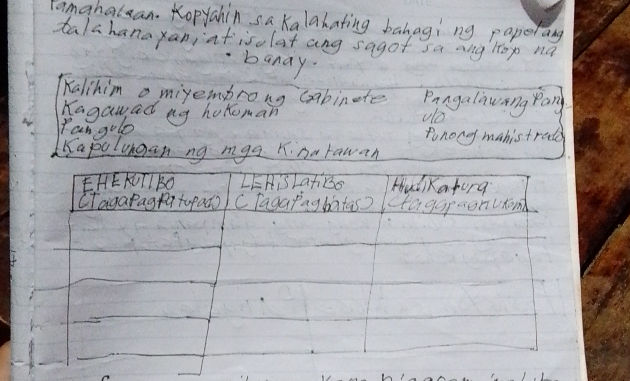 Pamahalaan. Kopyahin sa Kalahating bahagi ng papel ang
talahanayan, at isulat ang sagot sa angkop na
banay.
Kalihim o miyembro ng Gabinete Pangalawang Pang
Kagawad ng hukuman ulo
Pangulo Punong mahistrado
Kapulungan ng mga Kinatawan
EHEKUTIBO LEHISLATIBO Hudikatura
(TagaPagPatupad) (TagaPagbatas) (tagapaghukom)